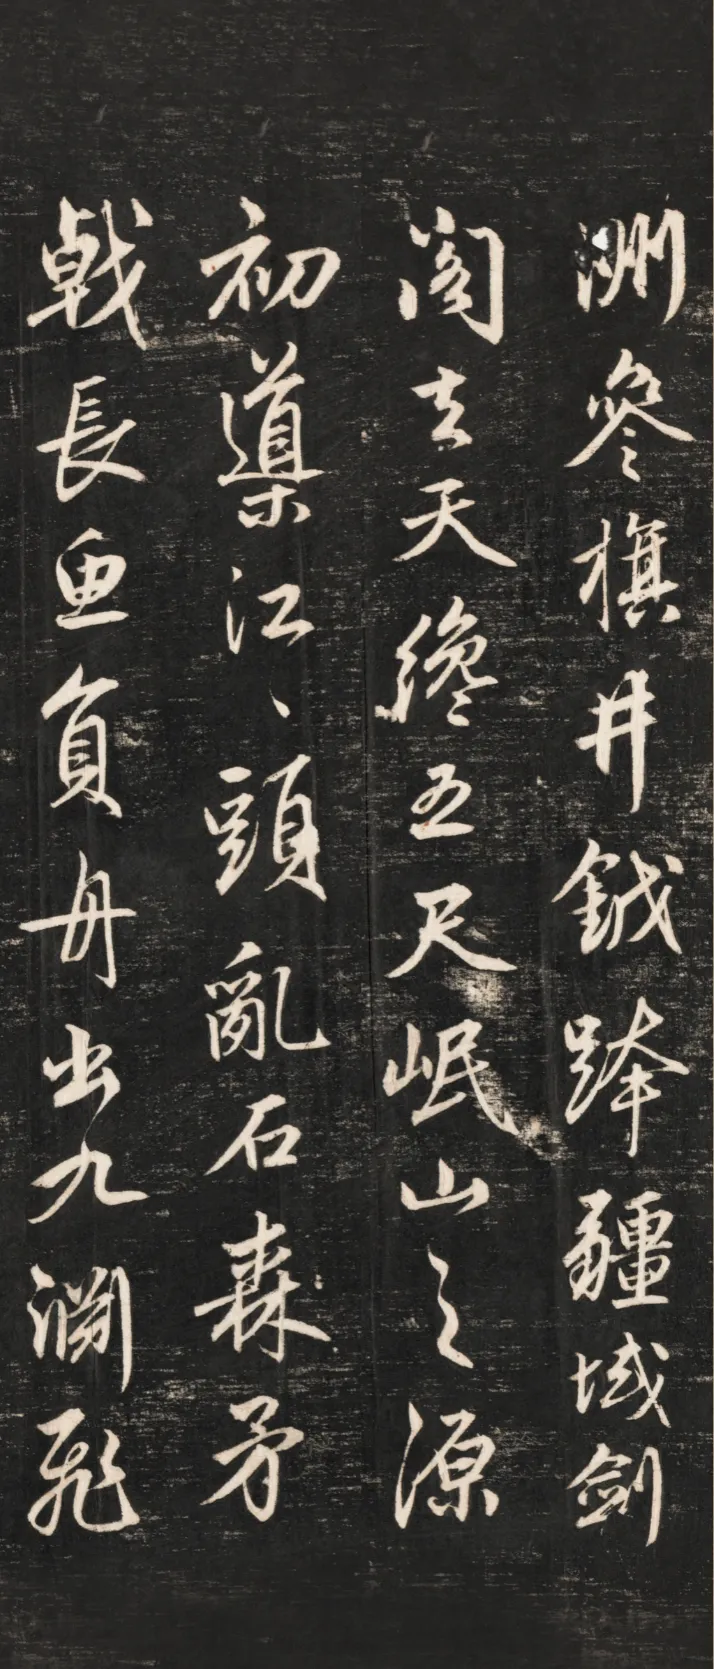 洲參旗井鉞跨疆域劍
閣去天纔五尺岷山之源
初導江、頭亂石森矛
戟長魚負舟出九淵飛